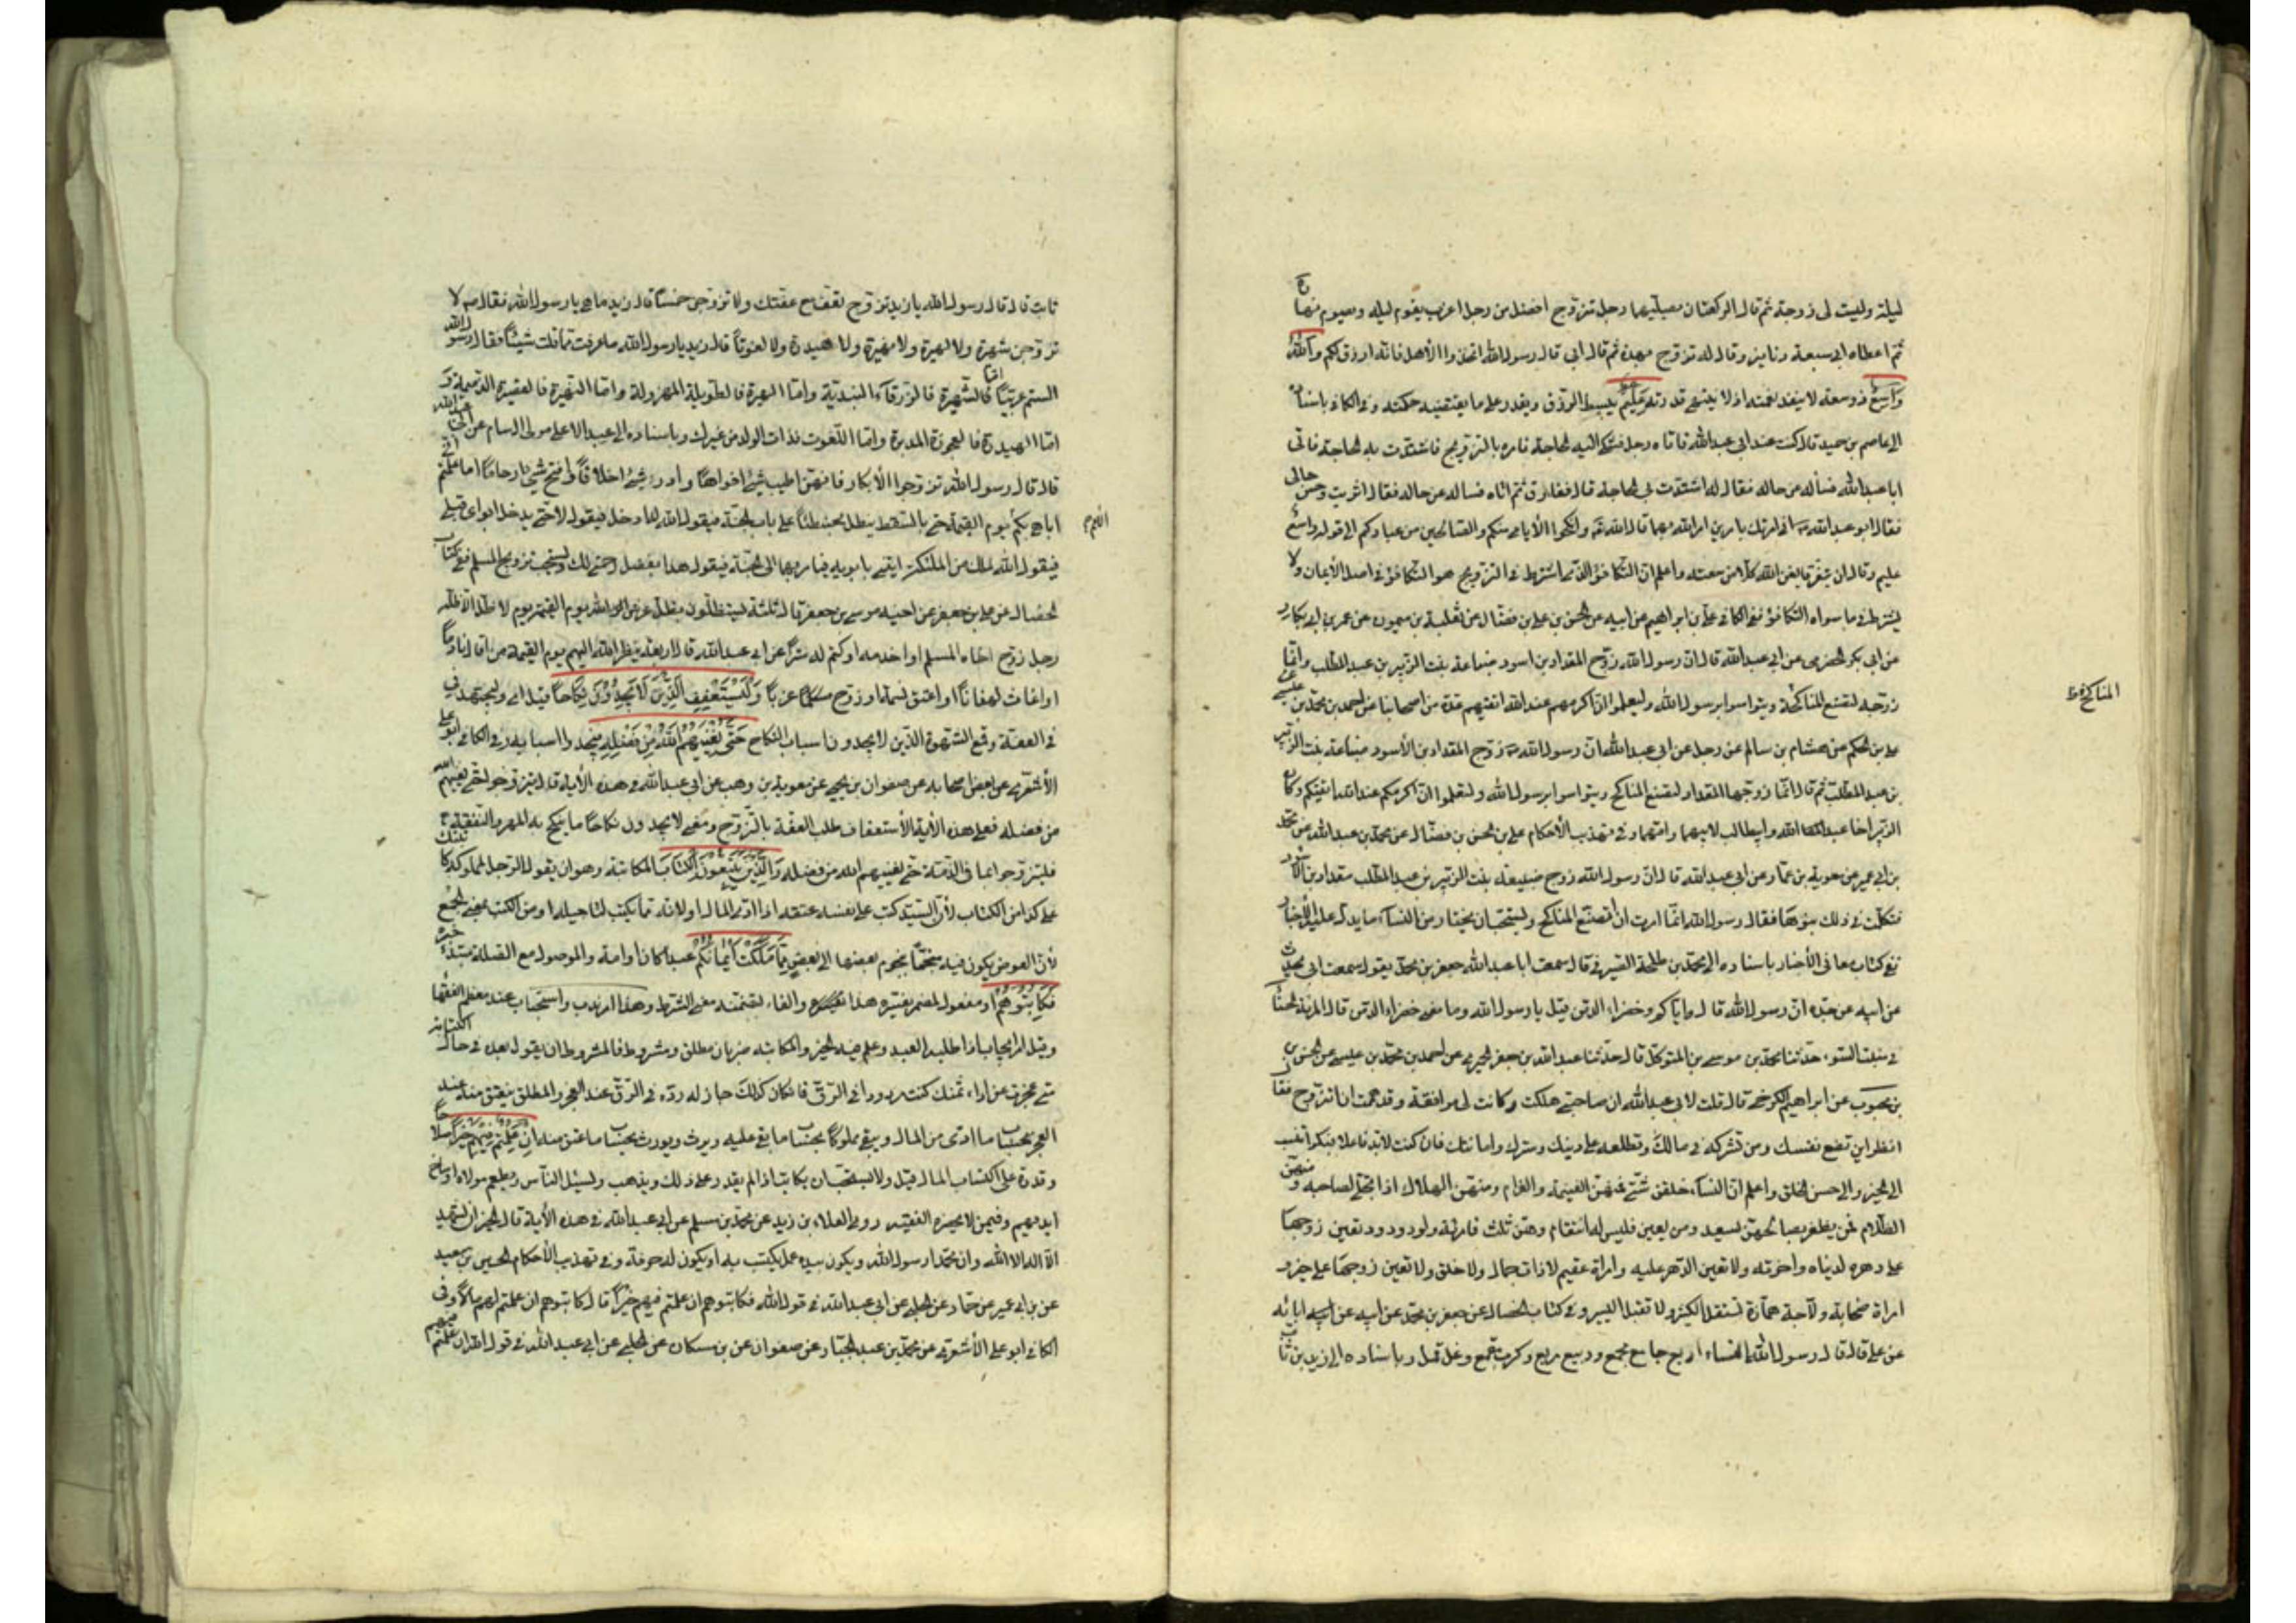 ليلة وليست لي زوجة ثم قال الركعتان يصليهما رجل متزوج افضل من رجل اعزب يقوم ليله ويصوم نهاره
ثم اعطاه ابي سبعة دنانير وقال له تزوج بهذه ثم قال ابي قال رسول الله اتخذوا الأهل فانه ارزق لكم والله
واسع ذو سعة لا ينفد نعمته اذ لا ينتهي قدرته عليم يبسط الرزق ويقدر على ما يقتضيه حكمته وفي الكافي باسناده
الى عاصم بن حميد قال كنت عند ابي عبدالله فاتاه رجل فشكى اليه الحاجة فامره بالتزويج فاشتدت به الحاجة فاتى
ابا عبدالله فسأله عن حاله فقال له اشتدت بي الحاجة قال ففارق ثم اتاه فساله عن حاله فقال اثريت وحسن حالي
فقال ابو عبدالله اني امرتك بامرين امر الله بهما قال الله وانكحوا الأيامى منكم والصالحين من عبادكم الى قوله واسع
عليم وقال ان يتفرقا يغن الله كلا من سعته واعلم ان التكافؤ الذي اشترط في التزويج هو التكافؤ في اصل الأيمان ولا
يشترط في ما سواه التكافؤ ففي الكافي علي بن ابراهيم عن ابيه عن الحسن بن علي بن فضال عن ثعلبة بن ميمون عن عمر بن ابي بكار
عن ابي بكر الحضرمي عن ابي عبدالله قال ان رسول الله زوج المقداد بن اسود ضباعة بنت الزبير بن عبد المطلب وانما
زوجه لتتضع المناكحة ويتواسوا برسول الله وليعلموا ان اكرمهم عند الله اتقيهم عدة من اصحابنا عن احمد بن محمد بن عيسى عن
علي بن الحكم عن هشام بن سالم عن رجل عن ابي عبدالله ان رسول الله زوج المقداد بن الأسود ضباعة بنت الزبير
بن عبد المطلب ثم قال انما زوجها المقداد لتتضع المناكح ويتواسوا برسول الله ولتعلموا ان اكرمكم عند الله اتقيكم وكان
الزبير اخا عبدالله وابيطالب لابيهما وامهما وفي تهذيب الأحكام علي بن الحسن بن فضال عن محمد بن عبدالله عن محمد
بن ابي عمير عن معوية بن عمار عن ابي عبدالله قال ان رسول الله زوج ضبيعة بنت الزبير بن عبد المطلب مقداد بن الأسود
فتكلمت في ذلك بنو هاشم فقال رسول الله انما اردت ان تتضع المناكح ويستحب ان يختار من النساء ما يدل عليه الأخبار
ففي كتاب معاني الأخبار باسناده الى محمد بن طلحة الصيرفي قال سمعت ابا عبدالله جعفر بن محمد يقول سمعت ابي يحدث
عن ابيه عن جده ان رسول الله قال واياكم وخضراء الدمن قيل يا رسول الله وما معنى خضراء الدمن قال المرأة الحسناء
في منبت السوء حدثنا محمد بن موسى بن المتوكل قال حدثنا عبدالله بن جعفر الحميري عن احمد بن محمد بن عيسى عن الحسن
بن محبوب عن ابراهيم الكرخي قال قلت لابي عبدالله ان صاحبتي هلكت وكانت لي موافقة وقد هممت ان اتزوج فقال
انظر اين تضع نفسك ومن تشركه في مالك وتطلعه على دينك وسرك وامانتك فان كنت لابد فاعلا فبكرا تنسب
الى الخير والى حسن الخلق واعلم ان النساء خلقن شتى فمنهن الغنيمة والغرام ومنهن الهلال اذا تجلى لصاحبه ومنهن
الظلام فمن يظفر بصالحهن يسعد ومن يغبن فليس له انتقام وهن ثلث فامرأة ولود ودود تعين زوجها
على دهره لدنياه واخرته ولا تعين الدهر عليه وامراة عقيم لا ذات جمال ولا خلق ولا تعين زوجها على خير و
امراة صخابة ولاجة همازة تستقل الكثير ولا تقبل اليسير وفي كتاب الخصال عن جعفر بن محمد عن ابيه عن ابائه
عن علي قال قال رسول الله النساء اربع جامع مجمع وربيع مربع وكرب مقمع وغل قمل وباسناده الى زيد بن ثابت
المناكح
ثابت قال قال رسول الله يا زيد تزوج تعفف مع عفتك ولا تزوجن خمسا قال زيد ما هي يا رسول الله فقال لا
تزوجن شهبرة ولا لهبرة ولا نهبرة ولا هيدرة ولا لفوتا قال زيد يا رسول الله ما عرفت مما قلت شيئا فقال رسول الله
الستم عربيا اما الشهبرة فالزرقاء البذية واما اللهبرة فالطويلة المهزولة واما النهبرة فالقصيرة الدميمة و
اما الهيدرة فالعجوزة المدبرة واما اللفوت فذات الولد من غيرك وباسناده الى عبد الاعلى مولى ال سام عن ابي عبدالله
قال قال رسول الله تزوجوا الأبكار فانهن اطيب شئ افواها وادر شئ اخلافا وافتح شئ ارحاما اما علمتم اني
اباهي بكم يوم القيمة حتى بالسقط يظل محبنطئا على باب الجنة فيقول الله له ادخل فيقول لا حتى يدخل ابواي قبلي
فيقول الله لملك من الملئكة ايتني بابويه فيامر بهما الى الجنة فيقول هذا بفضل رحمتي لك ويستحب تزويج المسلم ففي كتاب
الخصال عن علي بن جعفر عن اخيه موسى بن جعفر قال ثلثة يستظلون بظل عرش الله يوم القيمة يوم لا ظل الا ظله
رجل زوج اخاه المسلم او اخدمه او كتم له سرا عن ابي عبدالله قال اربعة ينظر الله اليهم يوم القيمة من اقال نادما
او اغاث لهفانا او اعتق نسمة او زوج عزبا وليستعفف الذين لا يجدون نكاحا قيل اي وليجتهد في
في العفة وقمع الشهوة الذين لا يجدون اسباب النكاح حتى يغنيهم الله من فضله فيجدوا اسبابه وفي الكافي ابو علي
الأشعري عن بعض اصحابه عن صفوان بن يحيى عن معوية بن وهب عن ابي عبدالله في هذه الأية قال يتزوجوا حتى يغنيهم الله
من فضله فعلى هذه الأية الأستعفاف طلب العفة بالتزوج ومعنى لا يجدون نكاحا ما ينكح به المهر والنفقة
فليتزوجوا بما في الذمة حتى يغنيهم الله من فضله والذين يبتغون الكتاب المكاتبة وهو ان يقول الرجل لمملوكه كاتبتك
على كذا من الكتاب لأن السيد كتب على نفسه عتقه اذا ادى المال او لانه مما يكتب لتاجيله او من الكتب بمعنى الجمع
لأن العوض يكون فيه منجما بنجوم بعضها الى بعض مما ملكت ايمانكم عبدا كان او امة والموصول مع الصلة مبتدء خبره
فكاتبوهم او مفعول لمضمر يفسره هذا والفاء لتضمنه معنى الشرط وهذا امر ندب واستحباب عند معظم الفقها
وقيل امر ايجاب اذا طلبه العبد وعلم فيه الخير والمكاتبة ضربان مطلق ومشروط فالمشروط ان يقول لعبده في حال الكتابة
متى عجزت عن اداء ثمنك كنت مردودا في الرق فان كان كذلك جاز له رده في الرق عند العجز والمطلق ينعتق منه عند
العجز بحساب ما ادى من المال ويبقى مملوكا بحساب ما بقي عليه ويرث ويورث بحساب ما عتق منه ان علمتم فيهم خيرا صلاحا
وقدرة على اكتساب المال قيل ولا يستحب ان يكاتب اذا لم يقدر على ذلك ويذهب ويسئل الناس ويطعم مولاه اوساخ
ايديهم وفيمن لا يحضره الفقيه روى العلاء بن زيد عن محمد بن مسلم عن ابي عبدالله في هذه الأية قال الخير ان يشهد
الا اله الا الله وان محمدا رسول الله ويكون بيده عمل يكتسب به او يكون له حرفة وفي تهذيب الأحكام الحسين بن سعيد
عن بن ابي عمير عن حماد عن الحلبي عن ابي عبدالله في قول الله فكاتبوهم ان علمتم فيهم خيرا قال كاتبوهم ان علمتم لهم مالا وفي
الكافي ابو علي الأشعري عن محمد بن عبد الجبار عن صفوان عن بن مسكان عن الحلبي عن ابي عبدالله في قوله ان علمتم فيهم